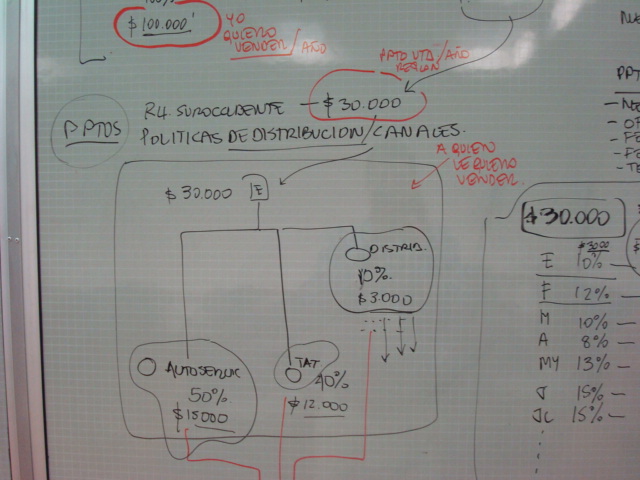 $ 100.000
YO
QUIERO
VENDER/AÑO
PPTO VTA/AÑO
$ 30.000
PPTOS
POLITICAS DE DISTRIBUCION/CANALES.
A QUIEN
LE QUIERO
VENDER.
$ 30.000 E
DISTRIB.
10%.
$ 3.000
TAT
40%
$ 12.000
50%
$ 15000
PPT
$30.000
E 10%
F 12%
M 10%
A 8%
MY 13%
J 15%
JL 15%